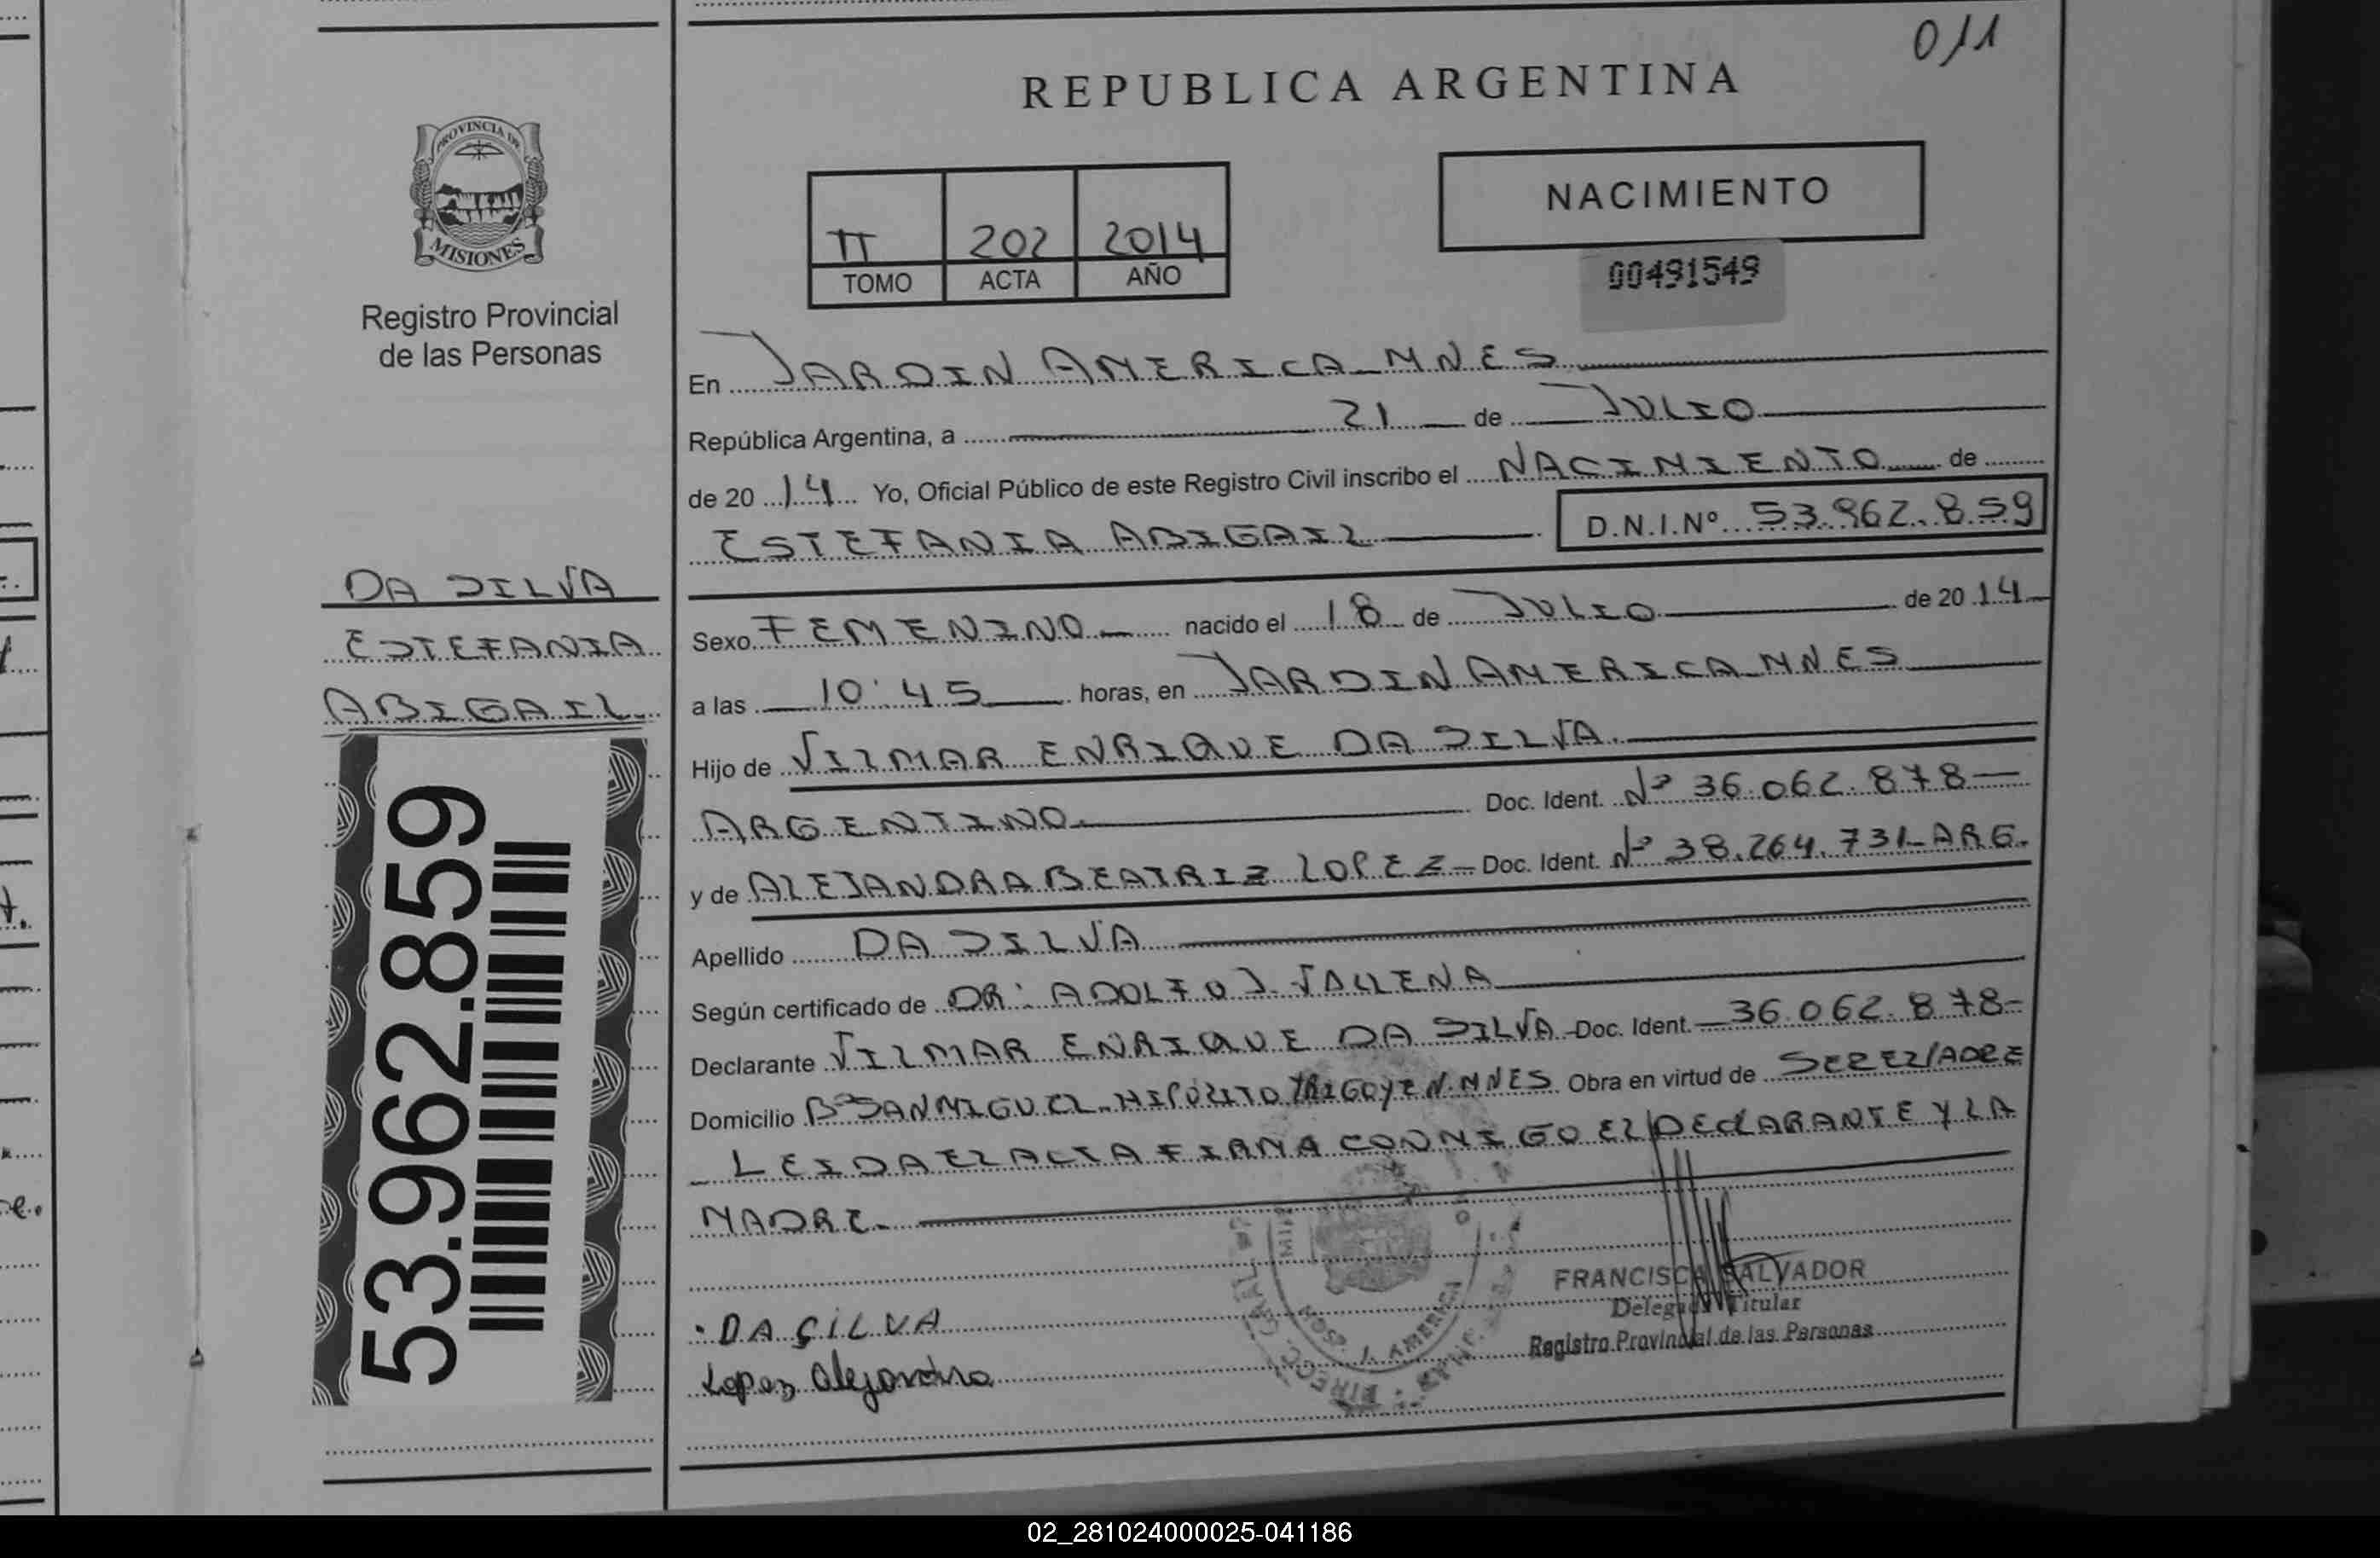 011
REPUBLICA ARGENTINA
PROVINCIA DE
MISIONES
Registro Provincial
de las Personas
II 202 2014
TOMO ACTA AÑO
NACIMIENTO
00491549
En JARDIN AMERICA_MNES
República Argentina, a 21 de JULIO
de 2014 Yo, Oficial Público de este Registro Civil inscribo el NACIMIENTO de
ESTEFANIA ABIGAIL D.N.I.Nº 53.962.859
DA SILVA
ESTEFANIA
ABIGAIL
53.962.859
Sexo FEMENINO nacido el 18 de JULIO de 2014
a las 10:45 horas, en JARDIN AMERICA_MNES
Hijo de VILMAR ENRIQUE DA SILVA.
ARGENTINO. Doc. Ident. Nº 36.062.878
y de ALEJANDRA BEATRIZ LOPEZ Doc. Ident. Nº 38.264.731_ARG.
Apellido DA SILVA
Según certificado de DR: ADOLFO J. VALLENA
Declarante VILMAR ENRIQUE DA SILVA Doc. Ident. 36.062.878
Domicilio Bº SAN MIGUEL_HIPOLITO YRIGOYEN.MNES Obra en virtud de SER EL PADRE
LEIDA EL ACTA FIRMA CONMIGO EL DECLARANTE Y LA
MADRE.
FRANCISCA SALVADOR
Delegada Titular
Registro Provincial de las Personas
DA SILVA
Lopez Alejandra
02_281024000025-041186